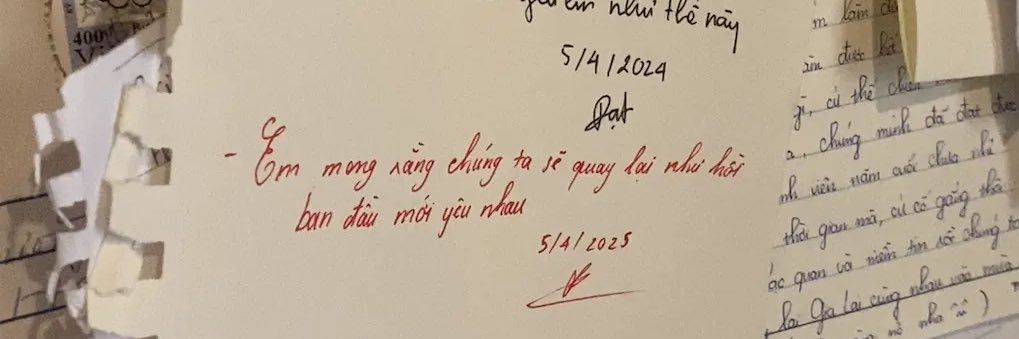 như thế này
5/4/2024
Đạt
- Em mong rằng chúng ta sẽ quay lại như hồi
ban đầu mới yêu nhau
5/4/2025
400
làm
được
cứ thế
chúng mình đã đạt được
viên năm cuối chưa
thời gian mà, cứ cố gắng thôi
quan và niềm tin với chúng
Gia Lai cùng nhau vào mùa
nha ^^ )